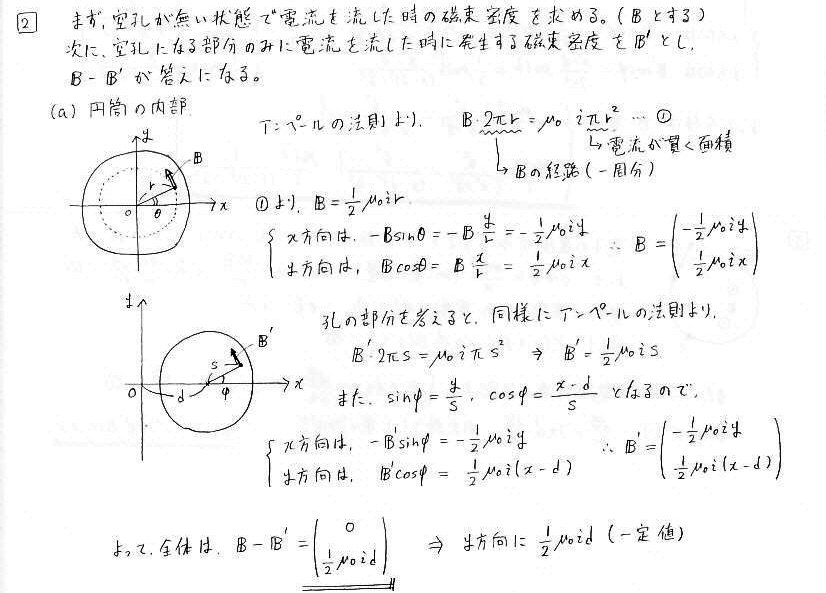 2 まず、空孔が無い状態で電流を流した時の磁束密度を求める。(Bとする)
次に、空孔になる部分のみに電流を流した時に発生する磁束密度をB'とし、
B-B'が答えになる。
(a) 円筒の内部
アンペールの法則より、 B・2πr = μ₀ iπr² … ①
→電流が貫く面積
→Bの経路(一周分)
y B r θ O x
①より、B = 1/2 μ₀ir
x方向は、-Bsinθ = -B y/r = -1/2 μ₀iy
y方向は、Bcosθ = B x/r = 1/2 μ₀ix
∴ B = (-1/2 μ₀iy, 1/2 μ₀ix)
y B' s φ O d x
孔の部分を考えると、同様にアンペールの法則より、
B'・2πs = μ₀iπs² ⇒ B' = 1/2 μ₀is
また、sinφ = y/s , cosφ = (x-d)/s となるので、
x方向は、-B'sinφ = -1/2 μ₀iy
y方向は、B'cosφ = 1/2 μ₀i(x-d)
∴ B' = (-1/2 μ₀iy, 1/2 μ₀i(x-d))
よって、全体は、B-B' = (0, 1/2 μ₀id) ⇒ y方向に 1/2 μ₀id (一定値)